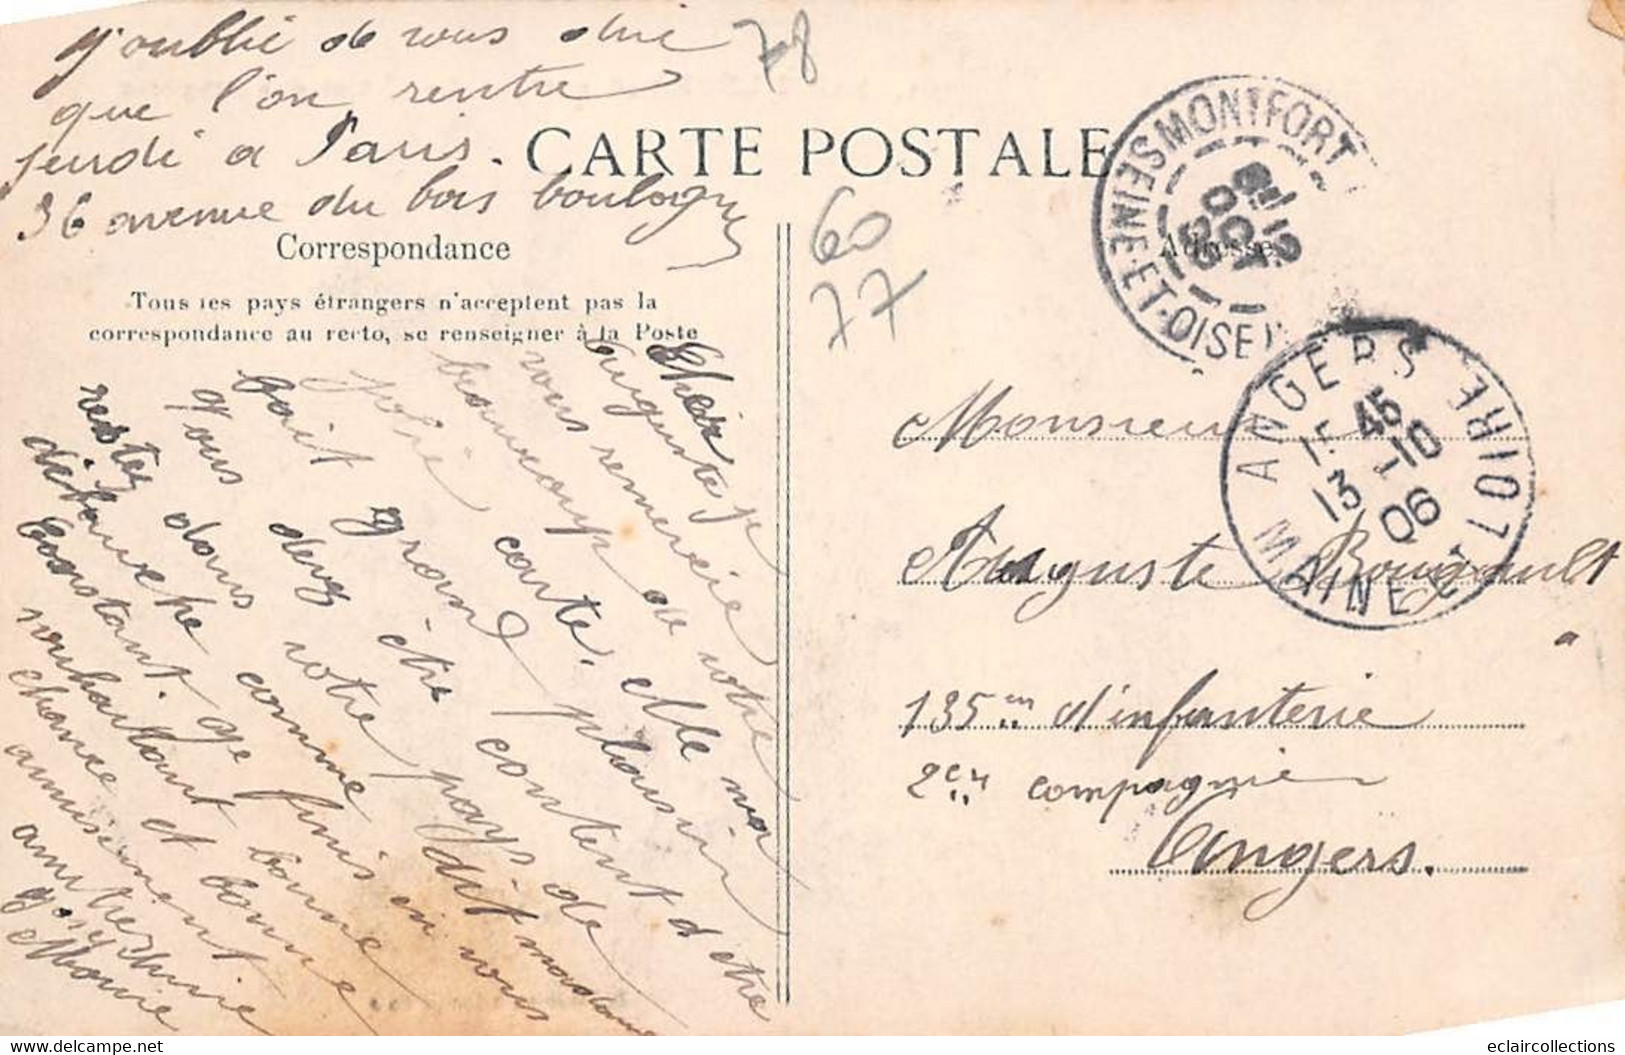 j'oublié de vous dire
que l'on rentre
jeudi a Paris.
36 avenue du bois boulogne
78
CARTE POSTALE
Correspondance
Tous les pays étrangers n'acceptent pas la
correspondance au recto, se renseigner à la Poste
60
77
Adresse
MONTFORT
SEINE-ET-OISE
ANGERS
MAINE ET LOIRE
15 45
13 - 10
06
Monsieur
Auguste Bougeault
135em d'infanterie
2em compagnie
Angers.
Cher
Auguste je
vous remercie de votre
beaucoup
Jolie carte, elle m'a
fait grand plaisir
vous devez être content d'être
restez dans votre pays de
débauche comme dit madame
Constant. je finis en vous
souhaitant bonne
chance et bonne
amusement
amitier
Marie
eclaircollections